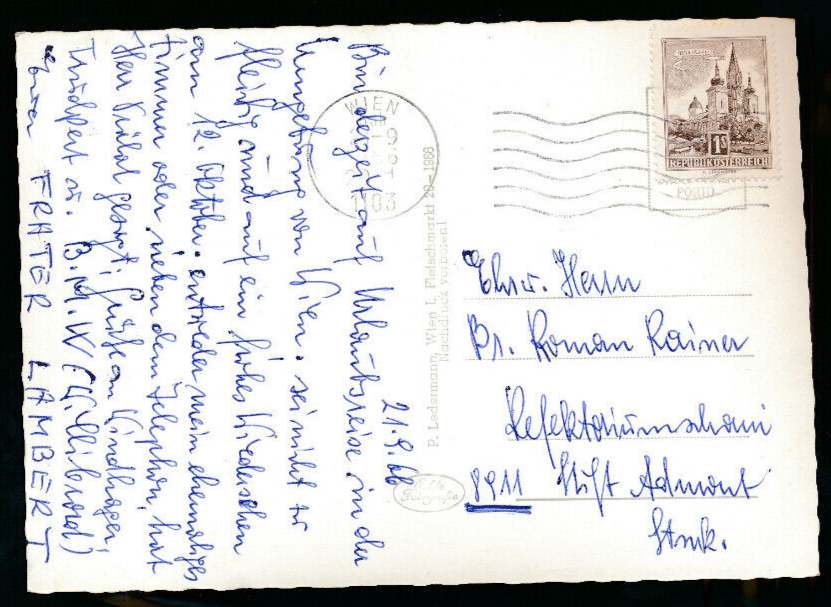 21.9.66
Bin derzeit auf Urlaubsreise in der
Umgebung von Wien. sei nicht zu
fleißig und auf ein frohes Wiedersehen
am 12. Oktober. entweder mein ehemaliges
Zimmer oder neben dem Telephon, hat
Herr Prälat gesagt; Grüße an
Trudpert u. B.M.W (Willibrord)
FRATER LAMBERT
P. Ledermann, Wien I, Fleischmarkt 20 — 1966
Nachdruck verboten!
Echte
WIEN
1103
1S
REPUBLIK ÖSTERREICH
PORTO
Ehrw. Herrn
Br. Roman Rainer
8911 Stift Admont
Stmk.